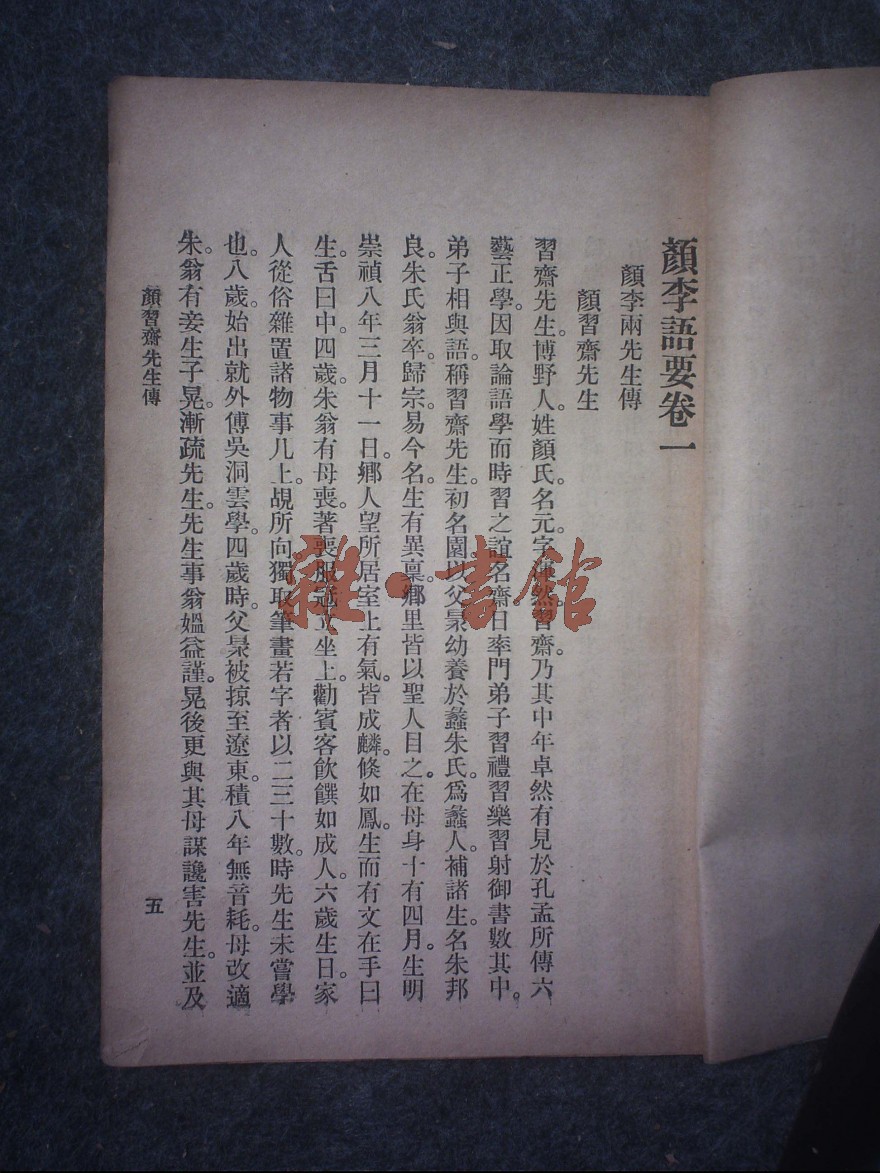 顏李語要卷一
顏李兩先生傳
顏習齋先生
習齋先生。博野人。姓顏氏。名元。字渾然。習齋。乃其中年卓然有見於孔孟所傳六
藝正學。因取論語學而時習之誼名齋。日率門弟子習禮習樂習射御書數其中。
弟子相與語。稱習齋先生。初名園。以父㫤幼養於蠡朱氏。爲蠡人。補諸生。名朱邦
良。朱氏翁卒。歸宗。易今名。生有異稟。鄉里皆以聖人目之。在母身十有四月。生明
崇禎八年三月十一日。鄉人望所居室上有氣。皆成麟。倏如鳳。生而有文在手曰
生。舌曰中。四歲。朱翁有母喪。著喪服冠立坐上。勸賓客飲饌如成人。六歲生日。家
人從俗雜置諸物事几上。覘所向。獨取筆畫若字者以二三十數。時先生未嘗學
也。八歲。始出就外傅吳洞雲學。四歲時。父㫤被掠至遼東。積八年無音耗。母改適
朱。翁有妾生子晃。漸疏先生。先生事翁媼益謹。晃後更與其母謀讒害先生。並及
顏習齋先生傳
五
雜·書館